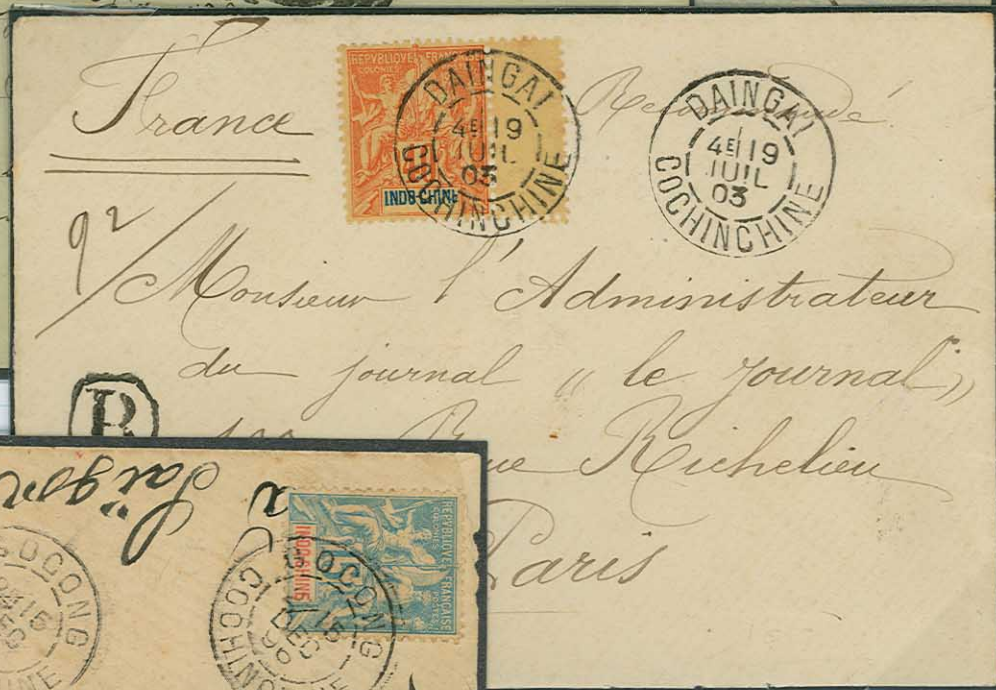 France
REPVBLIQVE FRANÇAISE
COLONIES
INDO-CHINE
DAINGAI
4E 19
JUIL
03
COCHINCHINE
Recommandé
DAINGAI
4E 19
JUIL
03
COCHINCHINE
92/
Monsieur l'Administrateur
du journal "le Journal"
R
Rue Richelieu
Paris
Saïgon
REPVBLIQVE FRANÇAISE
COLONIES
POSTES
INDO-CHINE
GOCONG
15
DEC
COCHINCHINE
GOCONG
15
DEC